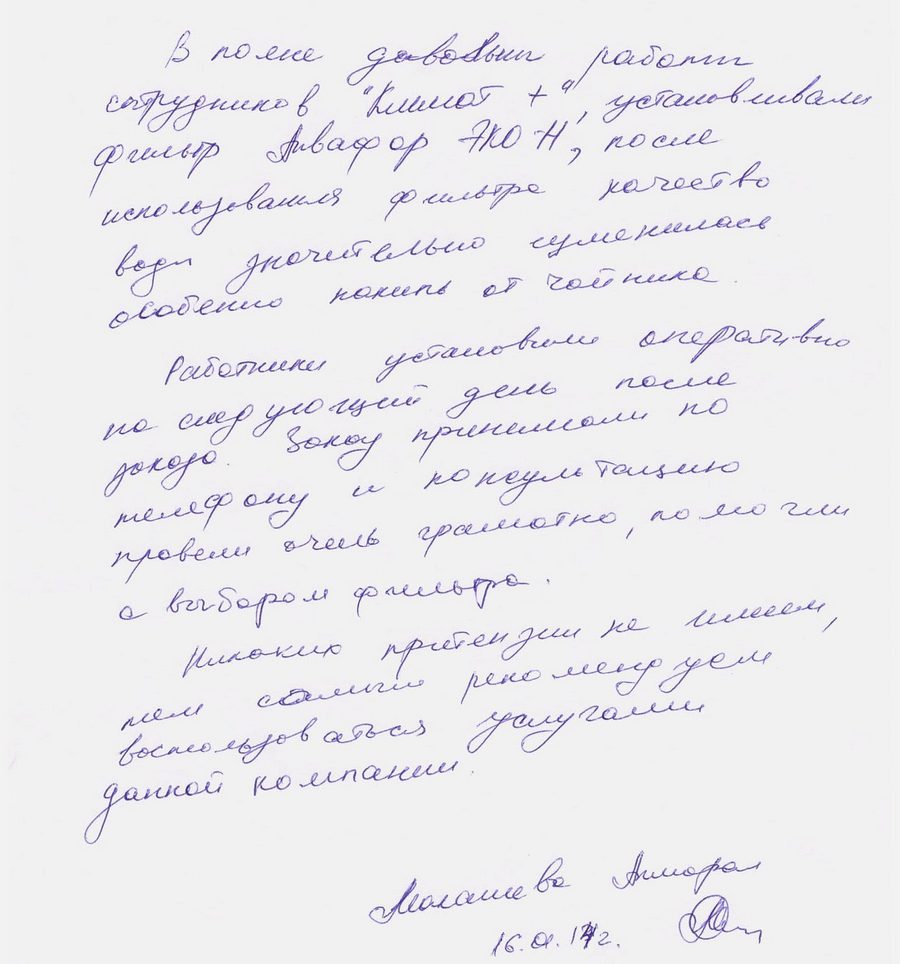 В полне давольны работы
сотрудников "Климат +", устанавливали
фильтр Аквафор ЭКО-Н, после
использования фильтра качество
воды значительно изменилась
особенно накипь от чайника.
Работники установили оперативно
на следующий день после
заказа. Заказ принимали по
телефону и консультацию
провели очень грамотно, помогли
с выбором фильтра.
Никаких притензии не имеем,
тем самым рекомендуем
воспользоваться услугами
данной компании.
Малашева Акмарал
16.01.14г.